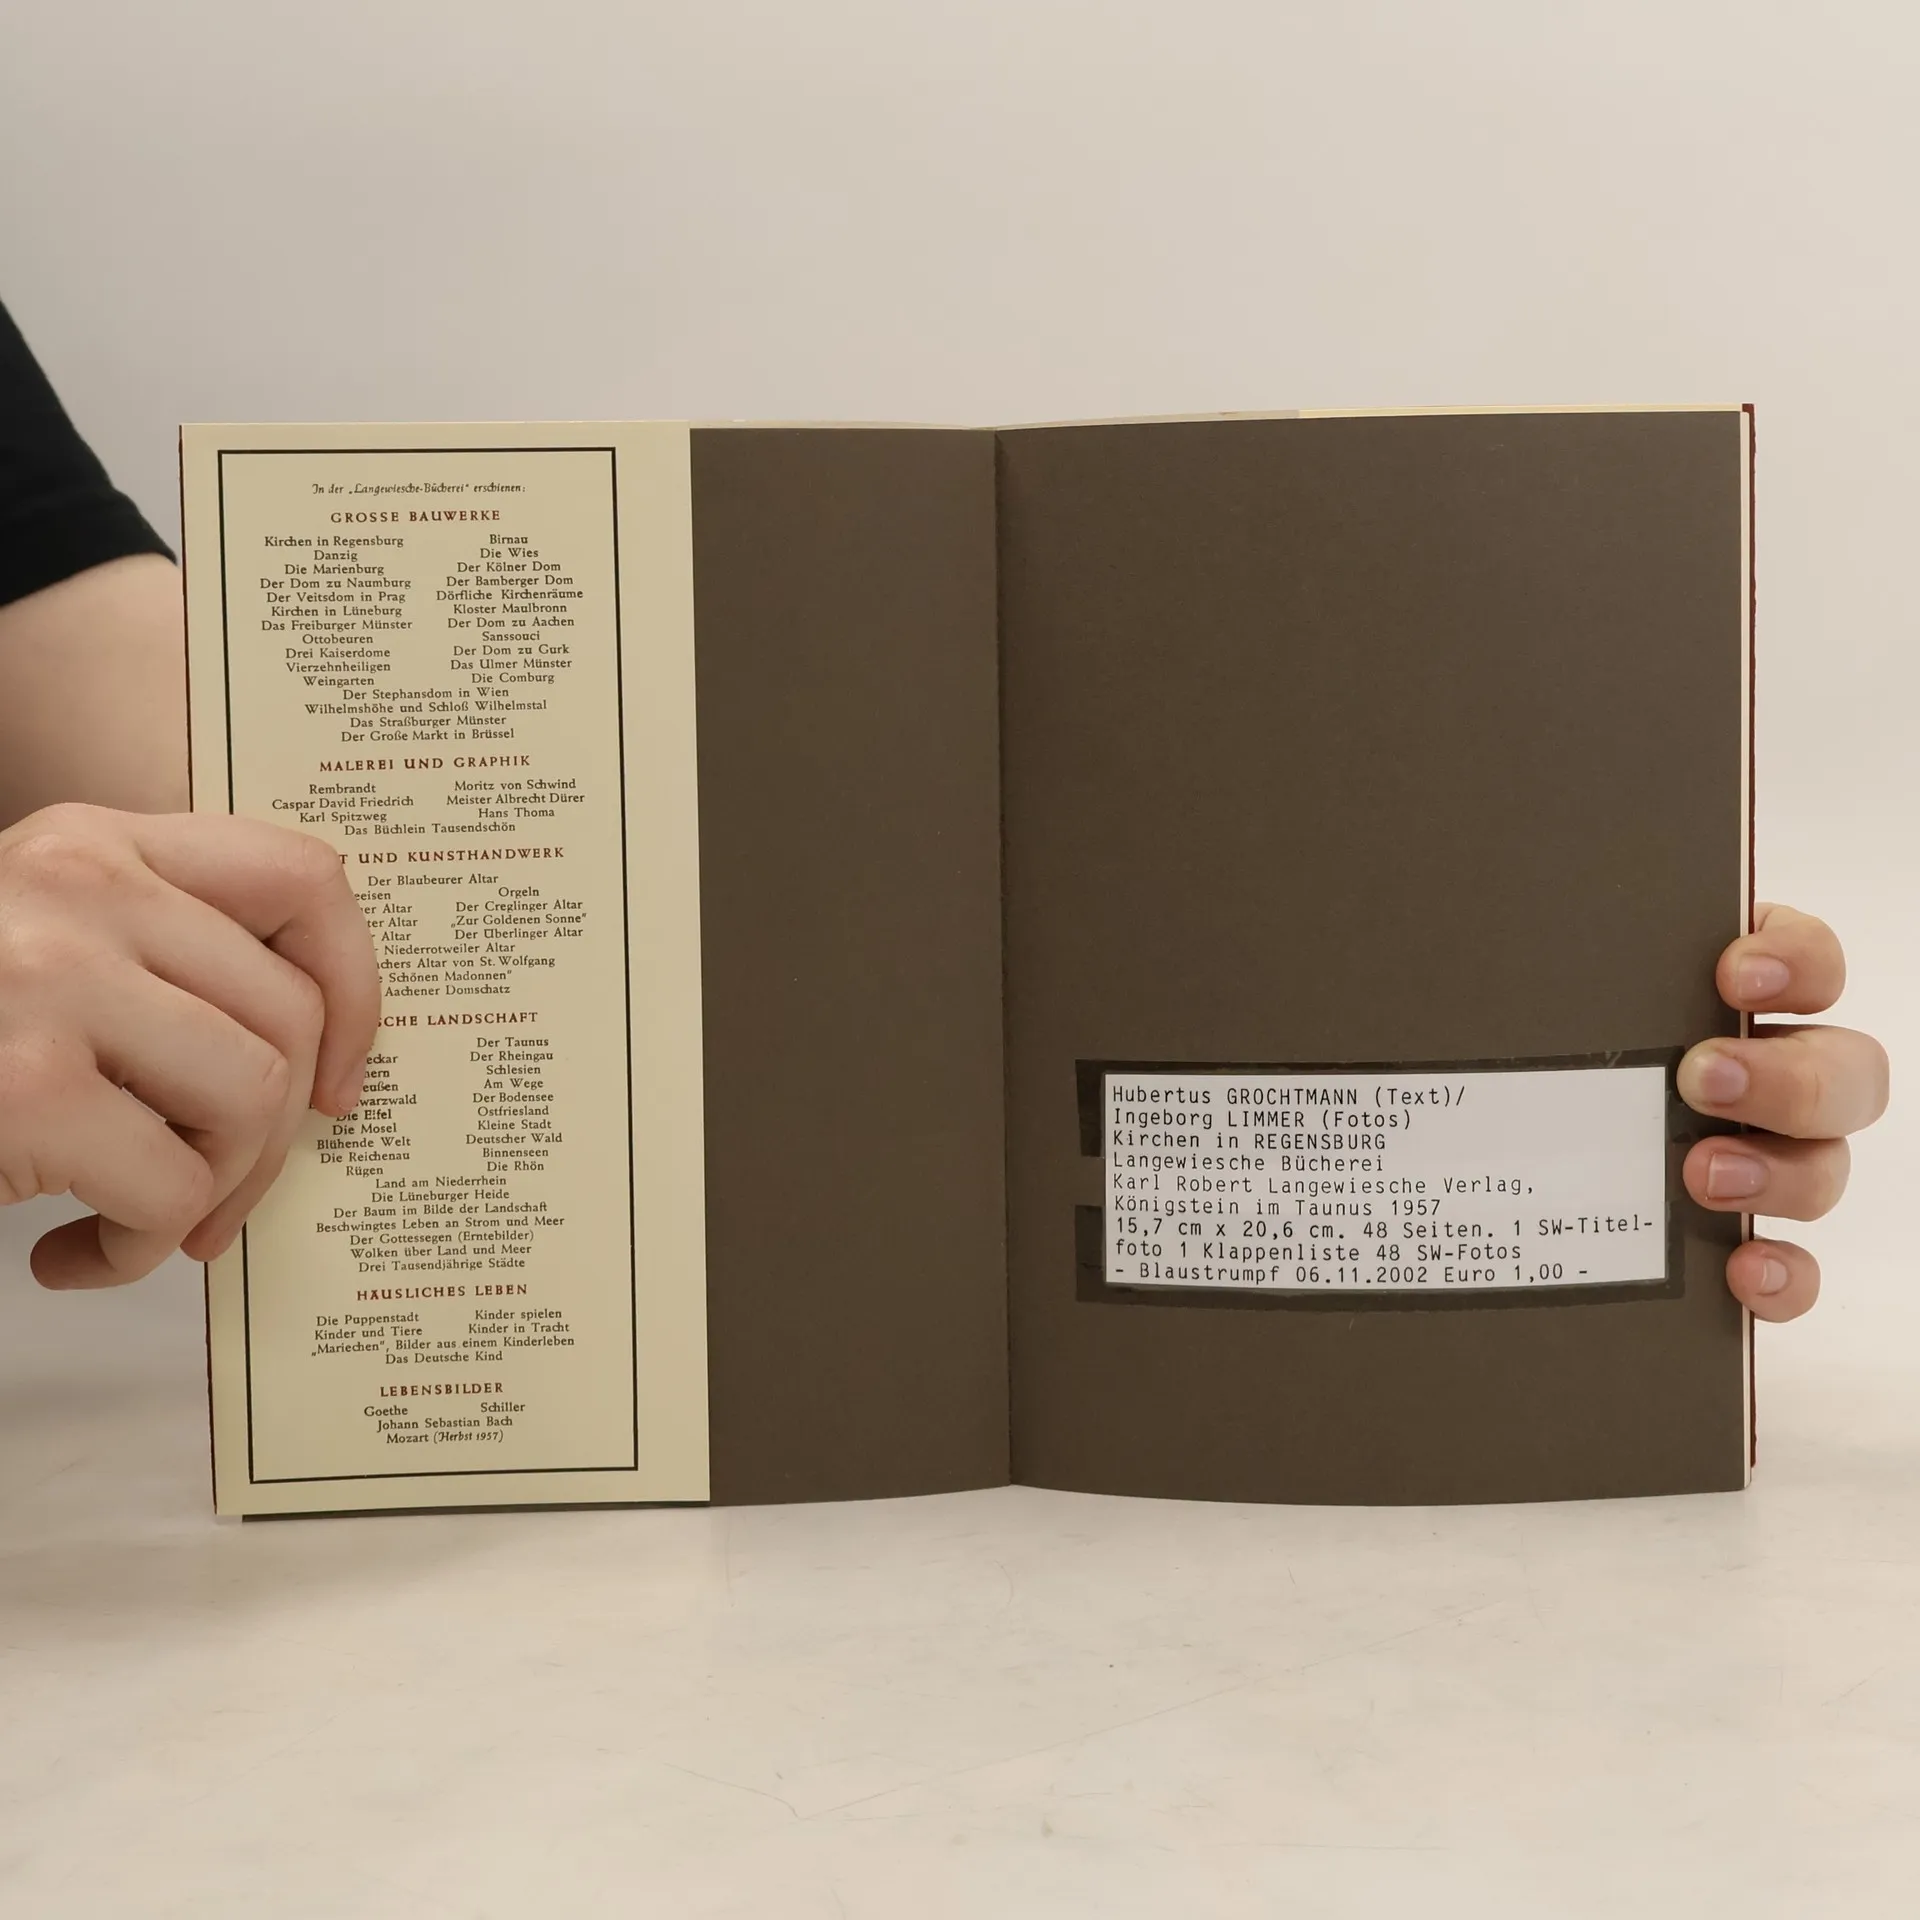 In der „Langewiesche-Bücherei“ erschienen:
GROSSE BAUWERKE
Kirchen in Regensburg Birnau
Danzig Die Wies
Die Marienburg Der Kölner Dom
Der Dom zu Naumburg Der Bamberger Dom
Der Veitsdom in Prag Dörfliche Kirchenräume
Kirchen in Lüneburg Kloster Maulbronn
Das Freiburger Münster Der Dom zu Aachen
Ottobeuren Sanssouci
Drei Kaiserdome Der Dom zu Gurk
Vierzehnheiligen Das Ulmer Münster
Weingarten Die Comburg
Der Stephansdom in Wien
Wilhelmshöhe und Schloß Wilhelmstal
Das Straßburger Münster
Der Große Markt in Brüssel
MALEREI UND GRAPHIK
Rembrandt Moritz von Schwind
Caspar David Friedrich Meister Albrecht Dürer
Karl Spitzweg Hans Thoma
Das Büchlein Tausendschön
UND KUNSTHANDWERK
Der Blaubeurer Altar
Orgeln
Altar Der Creglinger Altar
Altar „Zur Goldenen Sonne“
Altar Der Überlinger Altar
Niederrotweiler Altar
Altar von St. Wolfgang
Schönen Madonnen“
Aachener Domschatz
LANDSCHAFT
Der Taunus
Der Rheingau
Schlesien
Am Wege
Der Bodensee
Die Eifel Ostfriesland
Die Mosel Kleine Stadt
Blühende Welt Deutscher Wald
Die Reichenau Binnenseen
Rügen Die Rhön
Land am Niederrhein
Die Lüneburger Heide
Der Baum im Bilde der Landschaft
Beschwingtes Leben an Strom und Meer
Der Gottessegen (Erntebilder)
Wolken über Land und Meer
Drei Tausendjährige Städte
HÄUSLICHES LEBEN
Die Puppenstadt Kinder spielen
Kinder und Tiere Kinder in Tracht
„Mariechen“, Bilder aus einem Kinderleben
Das Deutsche Kind
LEBENSBILDER
Goethe Schiller
Johann Sebastian Bach
Mozart (Herbst 1957)
Hubertus GROCHTMANN (Text)/
Ingeborg LIMMER (Fotos)
Kirchen in REGENSBURG
Langewiesche Bücherei
Karl Robert Langewiesche Verlag,
Königstein im Taunus 1957
15,7 cm x 20,6 cm. 48 Seiten. 1 SW-Titel-
foto 1 Klappenliste 48 SW-Fotos
- Blaustrumpf 06.11.2002 Euro 1,00 -